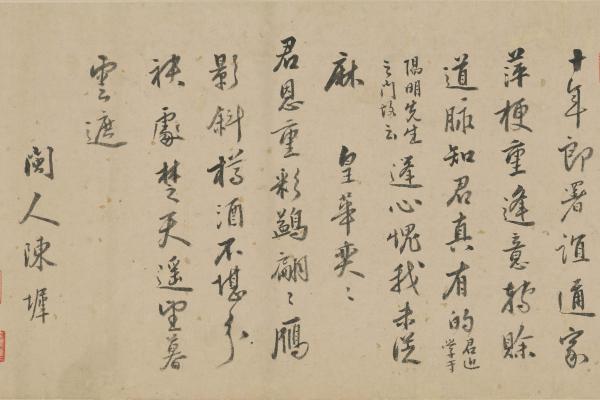 十年郎署誼通家
萍梗重逢意轉賒
道脉知君真有的君近學于
陽明先生之門故云蓬心愧我未從
麻皇華奕〻
君恩重彩鷁翩〻鴈
影斜樽酒不堪分
袂處楚天遙望暮
雲遮
閩人陳墀